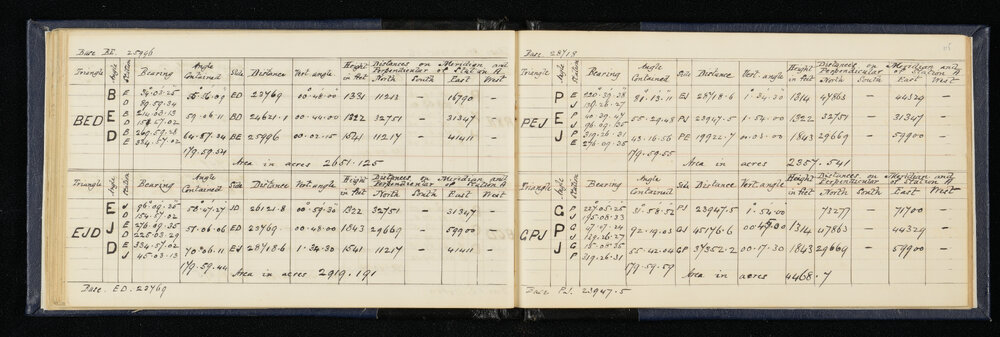 Base BE. 25996
Triangle Angle Station Bearing Angle Contained Side Distance Vert. angle Height in feet Distances on Meridian and Perpendicular of Station A North South East West
BED
B E 34.03.25 ED 23769 00.48.00 1331 11213 – 16790 –
D 89.59.34
E B 214.03.13 59.06.11 BD 24621.1 00.44.00 1322 32751 – 31347 –
D 154.57.02
D B 269.59.28 64.57.34 BE 25996 00.02.15 1541 11217 – 41411 –
E 334.57.02
179.59.54
Area in acres 2651.125
Triangle Angle Station Bearing Angle Contained Side Distance Vert. angle Height in feet Distances on Meridian and Perpendicular of Station A North South East West
EJD
E J 96.09.35 58.47.27 JD 26121.8 00.59.30 1322 32751 – 31347 –
D 154.57.02
J E 276.09.35 51.06.06 ED 23769 00.48.00 1843 29669 – 59900 –
D 225.03.29
D E 334.57.02 70.06.11 EJ 28718.6 1.34.30 1541 11217 – 41411 –
J 45.03.13
179.59.44
Area in acres 2919.191
Base. ED. 23769
Base. 28718
Triangle Angle Station Bearing Angle Contained Side Distance Vert. angle Height in feet Distances on Meridian and Perpendicular of Station A North South East West
PEJ
P E 220.39.38 81.13.11 EJ 28718.6 1.34.30 1314 47863 – 44329 –
J 139.26.27
E P 40.39.47 55.29.48 PJ 23947.5 1.54.00 1322 32751 – 31347 –
J 96.09.35
J P 319.26.31 43.16.56 PE 19922.7 4.03.00 1843 29669 – 59900 –
E 276.09.35
179.59.55
Area in acres 2357.541
Triangle Angle Station Bearing Angle Contained Side Distance Vert. angle Height in feet Distances on Meridian and Perpendicular of Station A North South East West
GPJ
G P 227.05.25 31.58.52 PJ 23947.5 1.54.00 73277 – 71700 –
J 195.08.33
P G 47.07.24 92.19.03 GJ 45176.6 00.45.00 1314 47863 – 44329 –
J 139.26.27
J G 15.08.35 55.42.04 GP 37352.2 00.17.30 1843 29669 – 59900 –
P 319.26.31
179.59.57
Area in acres 4468.7
Base PJ. 23947.5